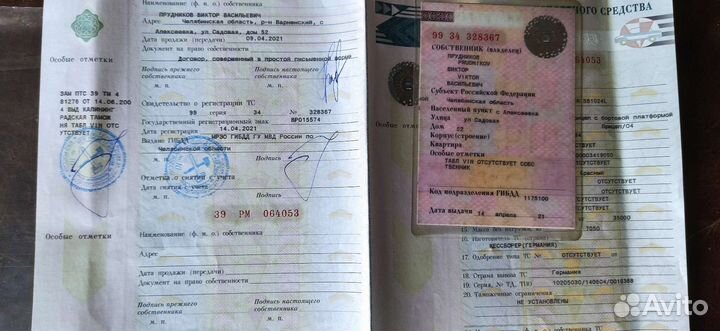 ПРУДНИКОВ ВИКТОР ВАСИЛЬЕВИЧ
Наименование (ф. и. о.) собственника
Челябинская область, р-н Варненский, с
Адрес
Алексеевка, ул Садовая, дом 52
Дата продажи (передачи) 09.04.2021
Документ на право собственности
Договор, совершенный в простой письменной форме
Особые отметки
Подпись прежнего собственника
Подпись настоящего собственника
М. П.
М. П.
ЗАМ ПТС 39 ТМ 4
81276 ОТ 14.06.200
4 ВЫД КАЛИНИНГ
РАДСКАЯ ТАМОЖ
НЯ ТАБЛ VIN ОТС
УТСТВУЕТ
Свидетельство о регистрации ТС
99 серия 34 № 328367
Государственный регистрационный знак ВР015574
Дата регистрации 14.04.2021
Выдано ГИБДД МРЭО ГИБДД ГУ МВД России по
Челябинской области
М. П. Подпись
Отметка о снятии с учета
Дата снятия с учета
М. П. Подпись
39 РМ 064053
Особые отметки
Наименование (ф. и. о.) собственника
Адрес
Дата продажи (передачи)
Документ на право собственности
Подпись прежнего собственника
Подпись настоящего собственника
М. П.
М. П.
СРЕДСТВА
99 34 328367
СОБСТВЕННИК (владелец)
ПРУДНИКОВ
PRUDNIKOV
ВИКТОР
VIKTOR
ВАСИЛЬЕВИЧ
Субъект Российской Федерации
Челябинская область
Населенный пункт с Алексеевка
Улица ул Садовая
Дом 52
Корпус (строение)
Квартира
Особые отметки
ТАБЛ VIN ОТСУТСТВУЕТ СОБС
ТВЕННИК
Код подразделения ГИБДД 1175100
Дата выдачи 14 апреля 21
064053
с бортовой платформой
Прицеп/04
Красный
ОТСУТСТВУЕТ
ОТСУТСТВУЕТ
35000
15 Масса без нагрузки, кг 7050
16 Изготовитель ТС (страна)
КЕССБОРЕР (ГЕРМАНИЯ)
17 Одобрение типа ТС № ОТСУТСТВУЕТ от
18 Страна вывоза ТС Германия
19 Серия, № ТД, ТПО 10205030/140604/0016368
20 Таможенные ограничения
НЕ УСТАНОВЛЕНЫ
Avito